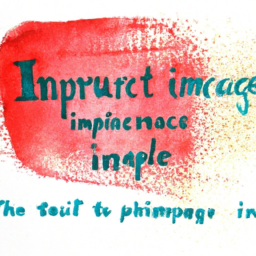 Inprurct imcage
impiienocc
inmple
The touit te phimpage in